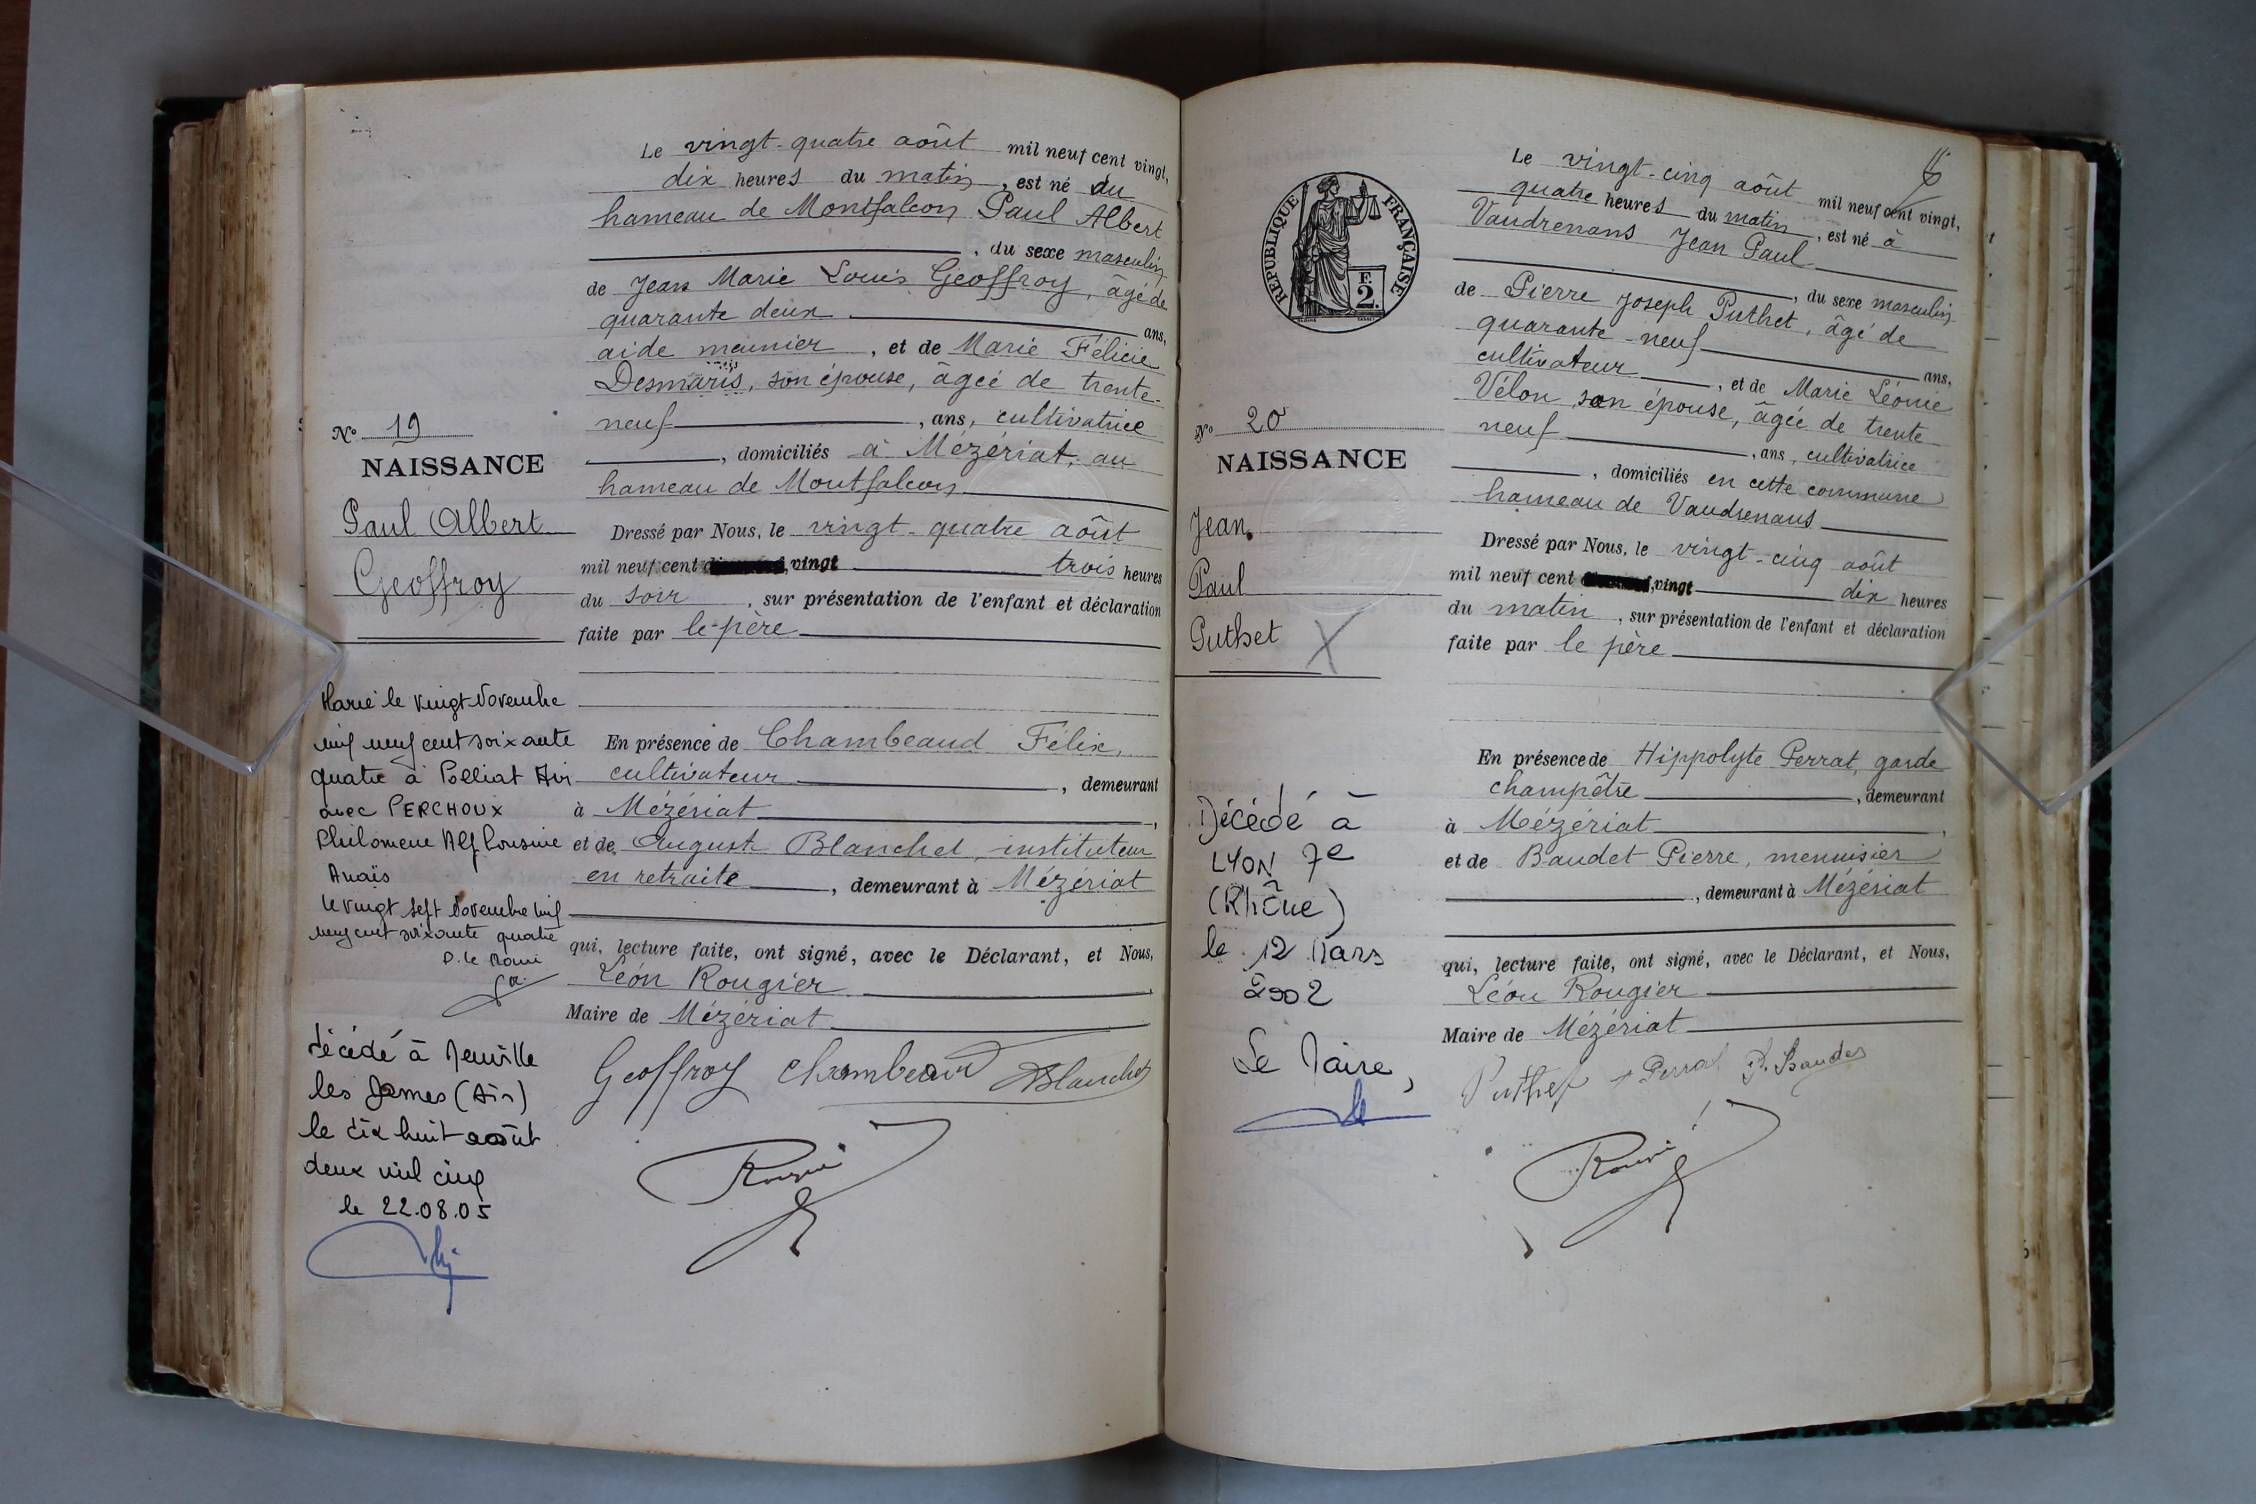 Le vingt-quatre août mil neuf cent vingt,
dix heures du matin, est né au
hameau de Montfalcon Paul Albert
, du sexe masculin
de Jean Marie Louis Geoffroy, âgé de
quarante deux ans,
aide meunier, et de Marie Félicie
Desmaris, son épouse, âgée de trente-
neuf, ans, cultivatrice
, domiciliés à Mézériat, au
hameau de Montfalcon
Dressé par Nous, le vingt-quatre août
mil neuf cent vingt trois heures
du soir, sur présentation de l'enfant et déclaration
faite par le père
En présence de Chambeaud Félix,
cultivateur, demeurant
à Mézériat,
et de August Blanchet, instituteur
en retraite, demeurant à Mézériat
qui, lecture faite, ont signé, avec le Déclarant, et Nous,
Léon Rougier
Maire de Mézériat
Geoffroy Chambeaud Blanchet
N° 19
NAISSANCE
Paul Albert
Geoffroy
Marié le vingt Novembre
mil neuf cent soixante
quatre à Polliat Ain
avec PERCHOUX
Philomène Alphonsine
Anaïs
le vingt sept Novembre mil
neuf cent soixante quatre
P. le Maire
décédé à Neuville
les Dames (Ain)
le dix huit août
deux mil cinq
le 22.08.05
RÉPUBLIQUE FRANÇAISE
F.
2.
N° 20
NAISSANCE
Jean
Paul
Puthet
Décédé à
LYON 7e
(Rhône)
le 12 Mars
2002
Le Maire,
Le vingt-cinq août mil neuf cent vingt,
quatre heures du matin, est né à
Vaudrenans Jean Paul
, du sexe masculin
de Pierre Joseph Puthet, âgé de
quarante-neuf ans,
cultivateur, et de Marie Léonie
Vélon son épouse, âgée de trente
neuf, ans, cultivatrice
, domiciliés en cette commune
hameau de Vaudrenans
Dressé par Nous, le vingt-cinq août
mil neuf cent vingt dix heures
du matin, sur présentation de l'enfant et déclaration
faite par le père
En présence de Hippolyte Perrat, garde
champêtre, demeurant
à Mézériat,
et de Baudet Pierre, menuisier
, demeurant à Mézériat
qui, lecture faite, ont signé, avec le Déclarant, et Nous,
Léon Rougier
Maire de Mézériat
Puthet Perrat P. Baudet